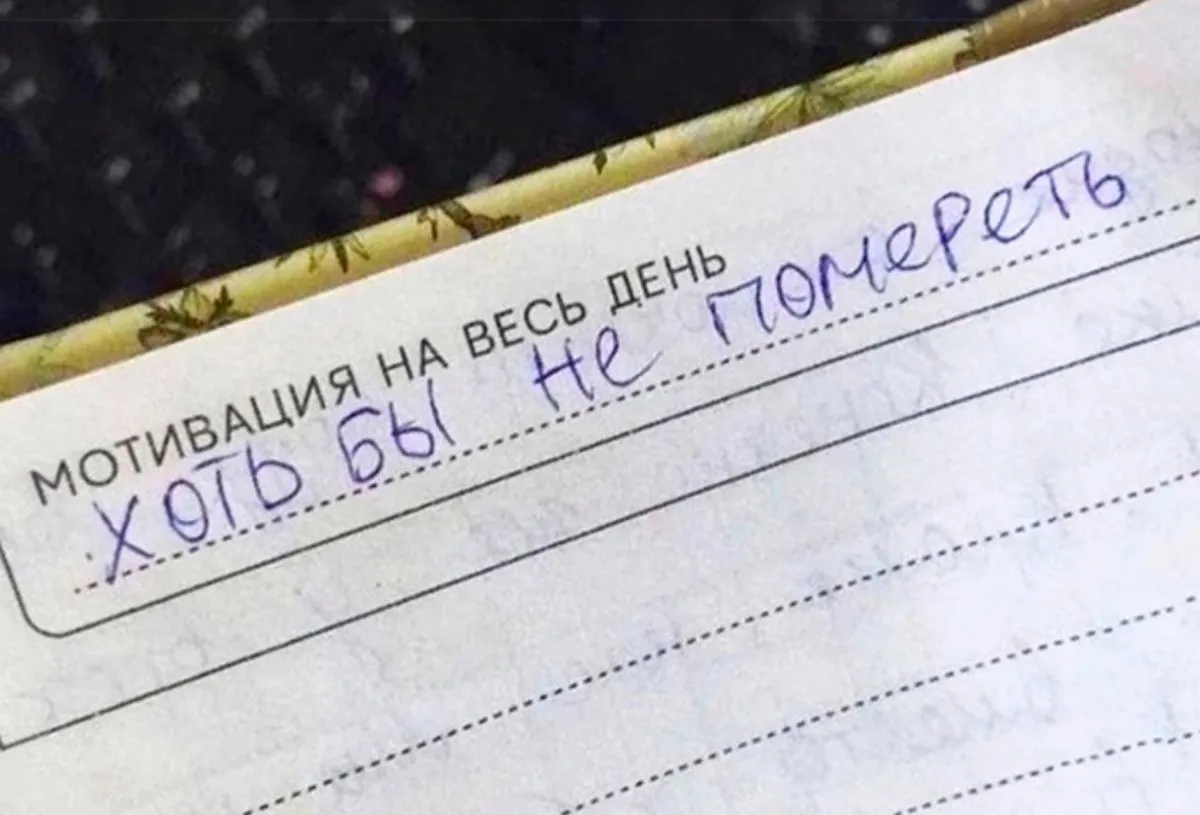 МОТИВАЦИЯ НА ВЕСЬ ДЕНЬ
ХОТЬ БЫ не помереть